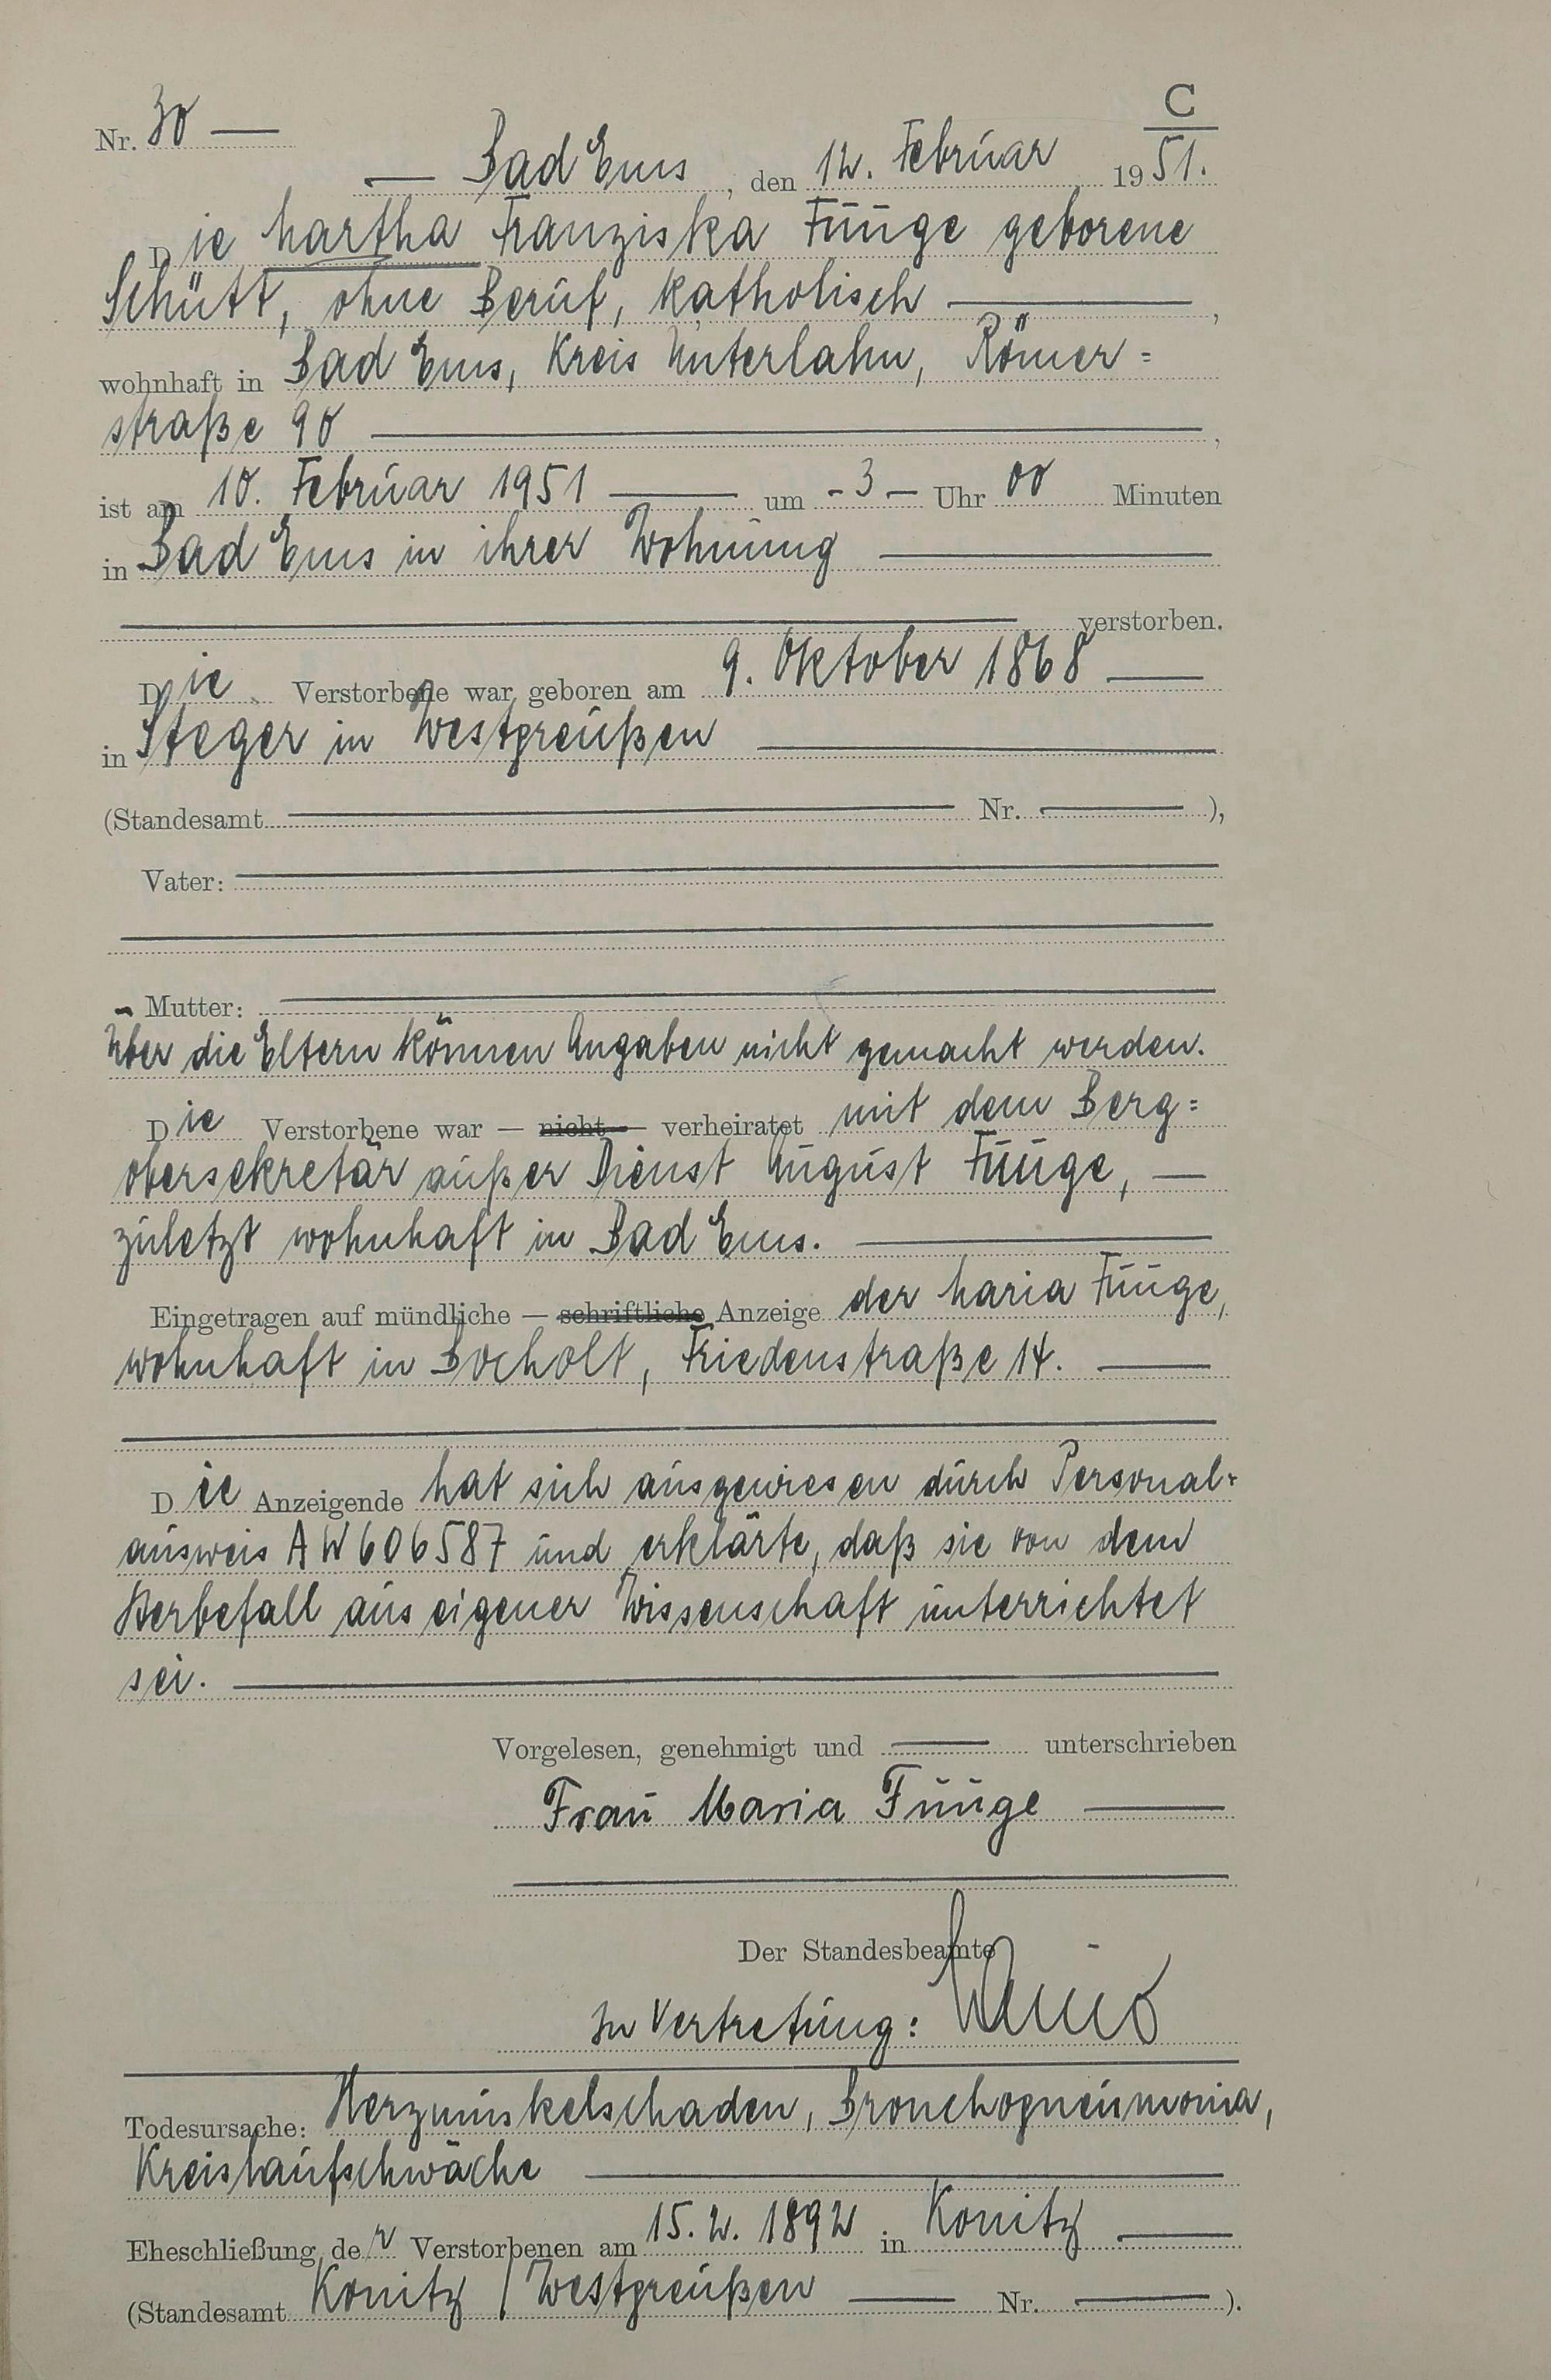 C
Nr. 30 —
— Bad Ems, den 12. Februar 1951.
Die Martha Franziska Füüge geborene
Schütt, ohne Beruf, katholisch —,
wohnhaft in Bad Ems, Kreis Unterlahn, Römer=
straße 90 —,
ist am 10. Februar 1951 — um - 3 — Uhr 00 Minuten
in Bad Ems in ihrer Wohnung —
— verstorben.
Die Verstorbene war geboren am 9. Oktober 1868 —
in Steger in Westpreußen —
(Standesamt — Nr. —),
Vater: —
Mutter: —
Über die Eltern können Angaben nicht gemacht werden.
Die Verstorbene war — nicht — verheiratet mit dem Berg=
obersekretär außer Dienst August Füüge, —
zuletzt wohnhaft in Bad Ems. —
Eingetragen auf mündliche — schriftliche Anzeige der Maria Füüge,
wohnhaft in Bocholt, Friedenstraße 14. —
Die Anzeigende hat sich ausgewiesen durch Personal=
ausweis AW 606587 und erklärte, daß sie von dem
Sterbefall aus eigener Wissenschaft unterrichtet
sei. —
Vorgelesen, genehmigt und — unterschrieben
Frau Maria Füüge —
Der Standesbeamte
In Vertretung:
Todesursache: Herzmuskelschaden, Bronchopneumonia,
Kreislaufschwäche —
Eheschließung der Verstorbenen am 15.2.1892 in Konitz —
(Standesamt Konitz / Westpreußen — Nr. —).